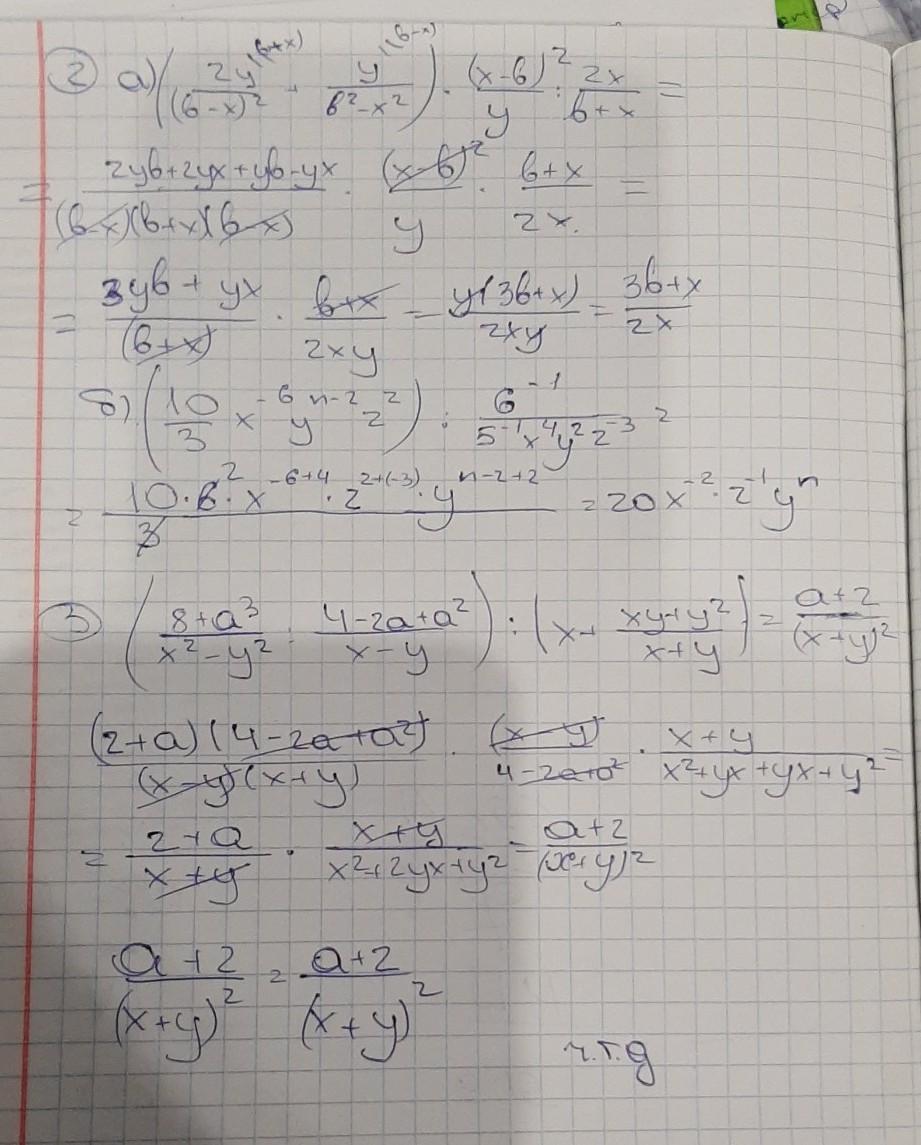 ② а) (2y^(в+x)/(в-x)² + y^(в-x)/(в²-x²)) · (x-в)²/y : 2x/(в+x) =
= (2yв+2yx+yв-yx)/((в-x)(в+x)(в-x)) · (x-в)²/y · (в+x)/(2x.) =
= (3yв+yx)/(в+x) · (в+x)/(2xy) = y(3в+x)/(2xy) = (3в+x)/(2x)
б) (10/3 x⁻⁶ y^(n-2) z²) : 6⁻¹/(5⁻¹x⁴y²z⁻³)
= (10·6²·x^(-6+4)·z^(2+(-3))·y^(n-2+2))/3 = 20x⁻²·z⁻¹yⁿ
③ ((8+a³)/(x²-y²) : (4-2a+a²)/(x-y)) : (x+(xy+y²)/(x+y)) = (a+2)/(x+y)²
(2+a)(4-2a+a²)/((x-y)(x+y)) · (x-y)/(4-2a+a²) · (x+y)/(x²+yx+yx+y²) =
= (2+a)/(x+y) · (x+y)/(x²+2yx+y²) = (a+2)/(x+y)²
(a+2)/(x+y)² = (a+2)/(x+y)²
ч.т.д